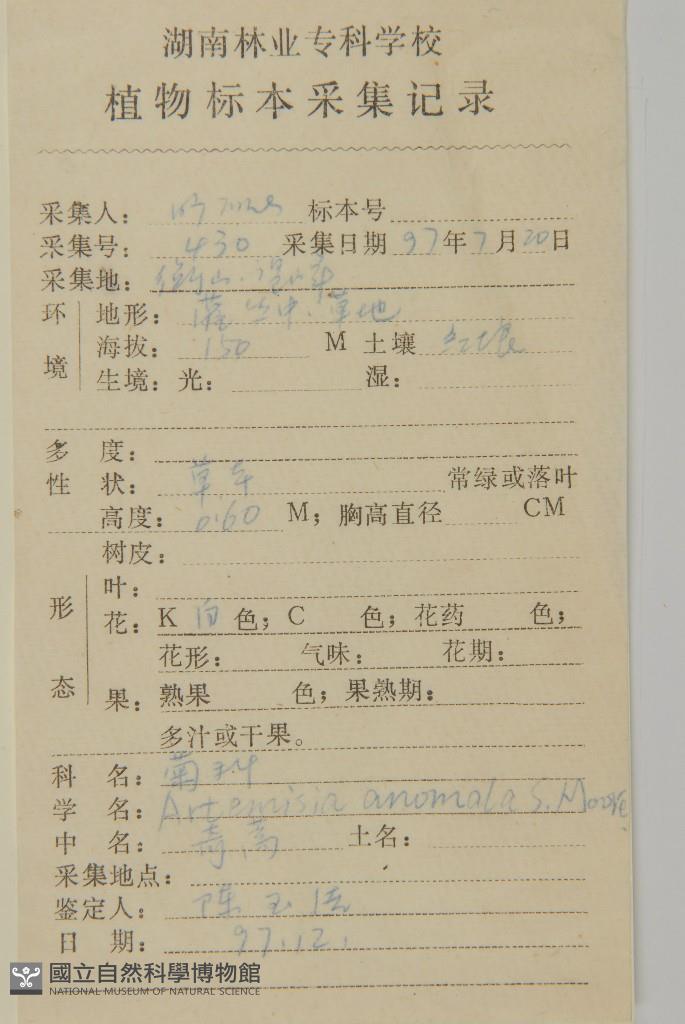 湖南林业专科学校
植物标本采集记录
采集人: 标本号
采集号: 430 采集日期 97年7月20日
采集地: 衡山
环境 地形: 草地
海拔: 150 M 土壤 红壤
生境: 光: 湿:
多度:
性状: 草本 常绿或落叶
高度: 0.60 M; 胸高直径 CM
树皮:
形态 叶:
花: K 白 色; C 色; 花药 色;
花形: 气味: 花期:
果: 熟果 色; 果熟期:
多汁或干果。
科名: 菊科
学名: Artemisia anomala S. Moore
中名: 奇蒿 土名:
采集地点:
鉴定人: 陈
日期: 97.12.
國立自然科學博物館
NATIONAL MUSEUM OF NATURAL SCIENCE